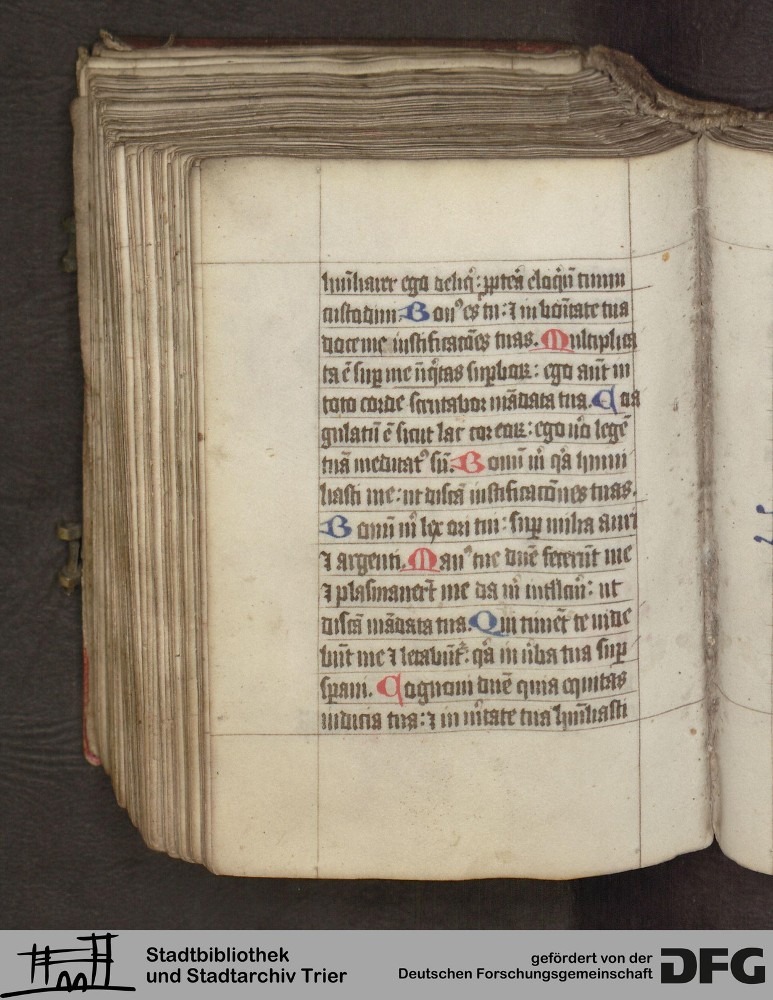 humiliarer ego deliq̄: ꝓptea eloqͥū tuum
custodiui. Bonꝰ es tu: ⁊ in bonitate tua
doce me iustificatōes tuas. Multiplica
ta ē sup me iniq̄tas supboꝝ: ego aūt in
toto corde scrutabor mādata tua. Coa
gulatū ē sicut lac cor eoꝝ: ego uͦ legē
tuā meditatꝰ sū. Bonū m̄ qͣ humi
liasti me: ut discā iustificatōnes tuas.
Bonū m̄ lex oris tui: sup milia auri
⁊ argenti. Manꝰ tue dn̄e fecerūt me
⁊ plasmauert̄ me da m̄ intllcū: ut
discā mādata tua. Qui timēt te uide
būt me ⁊ letabūt̄: qͣ in ūba tua sup
spaui. Cognoui dn̄e quia equitas
iudicia tua: ⁊ in ūitate tua humiliasti
Stadtbibliothek
und Stadtarchiv Trier
gefördert von der
Deutschen Forschungsgemeinschaft
DFG